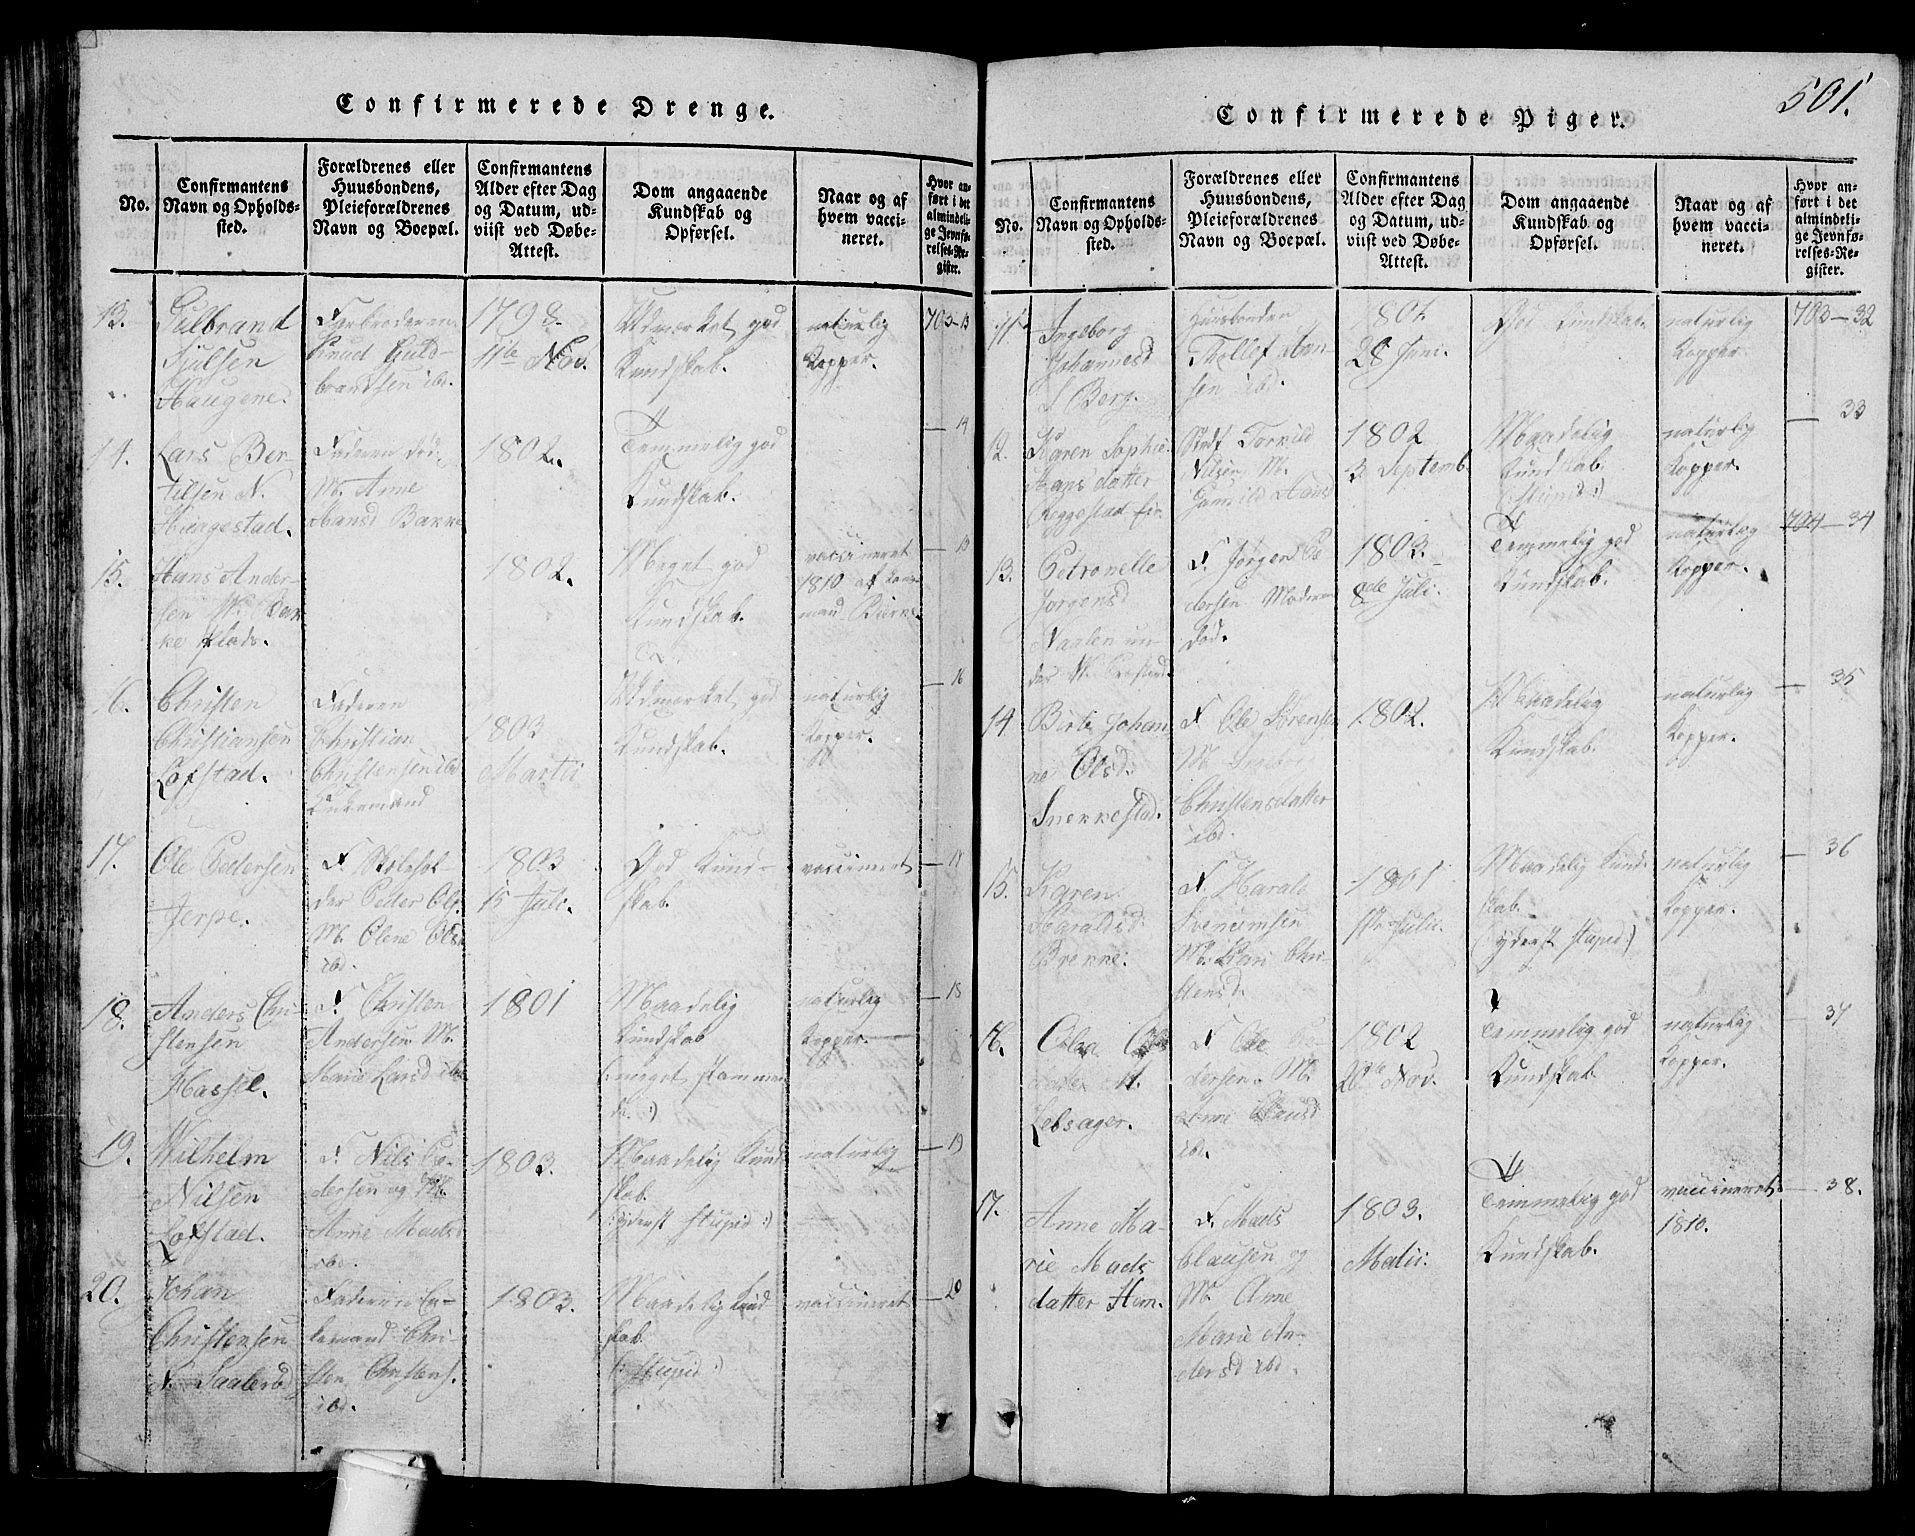 501.
Confirmerede Drenge.
No.
Confirmantens
Navn og Opholds-
sted.
Forældrenes eller
Huusbondens,
Pleieforældrenes
Navn og Boepæl.
Confirmantens
Alder efter Dag
og Datum, ud-
viist ved Døbe-
Attest.
Dom angaaende
Kundskab og
Opførsel.
Naar og af
hvem vacci-
neret.
Hvor an-
ført i det
almindeli-
ge Jevnfø-
relses-Re-
gister.
13.
Gulbrand
Hougene.
Knud Guld-
brandsen ibd.
1798.
11te Nov.
Udmærket god
Kundskab.
naturlig
Kopper.
703-13
14.
Lars Ber
tilsen N.
Faderen død,
M. Anne
Hansd Barke
1802.
Temmelig god
Kundskab.
14
15.
Hans Ander-
sen N. Bar
ke plads.
1802.
Meget god
Kundskab.
vaccineret
1810 af
15
16.
Christen
Christiansen
Lofstad.
Faderen
Christian
Christensen ibd
1803
Martii
Udmærket god
Kundskab.
naturlig
Kopper.
16
17.
Ole Pedersen
Jerpe.
F. Skolehol-
der Peder Ols.
M. Olene Olsd
ibd.
1803
15 Juli.
God Kund-
skab.
vaccineret
18.
Anders Chri-
stensen
Hassel.
F. Christen
Andersen M.
Marie Larsd ibd
1801
Maadelig
Kundskab
(: meget stammen
de :)
naturlig
Kopper.
18
19.
Wilhelm
Nilsen
Lofstad.
F. Nils Pe-
dersen og M.
Anne Madsd
ibd.
1803.
Maadelig Kund
skab.
(: yderst stupid :)
naturlig
19
20.
Johan
Christensen
N. Saalerød
Faderen
Chri-
sten Christens.
ibd.
1803.
Maadelig Kund
skab.
(: stupid :)
vaccineret
20
Confirmerede Piger.
No.
Confirmantens
Navn og Opholds-
sted.
Forældrenes eller
Huusbondens,
Pleieforældrenes
Navn og Boepæl.
Confirmantens
Alder efter Dag
og Datum, ud-
viist ved Døbe-
Attest.
Dom angaaende
Kundskab og
Opførsel.
Naar og af
hvem vacci-
neret.
Hvor an-
ført i det
almindeli-
ge Jevnfø-
relses-Re-
gister.
11.
Ingeborg
Johannesd
S Berg.
Huusbonden
Thollef Han
sen ibd.
1801.
28 Juni.
God Kundskab.
naturlig
Kopper.
703-32
12.
Karen Sophie
Hans datter
Stedf Torvild
Nilsen M.
1802
3. Septemb.
Maadelig
Kundskab.
naturlig
Kopper.
33
13.
Petronelle
Jorgensd
F. Jørgen Pe
dersen Moderen
død.
1803.
8de Juli.
Temmelig god
Kundskab.
naturlig
Kopper.
704-34
14
Birte Johan
ne Olsd.
Snerkestad.
F Ole Sørensen
M. Ingeborg
Christensdatter
ibd.
1802.
Maadelig
Kundskab.
naturlig
Kopper.
35
15.
Karen
Haraldsd.
Brekke.
F. Harald
M. Kari Chri-
stensd.
1801
Julii.
Maadelig Kund-
skab.
(: yderst stupid :)
naturlig
Kopper.
36
16.
datter N.
Lebsager.
F Ole Pe-
dersen. M.
Anne Clausd
ibd.
1802
20de Nov.
Temmelig god
Kundskab.
naturlig
Kopper.
37
17.
Anne Ma-
rie Mads
datter Hem.
F. Mads
Clausen og
M. Anne
Marie An-
dersd ibd.
1803.
Temmelig god
Kundskab.
vaccineret
1810.
38.